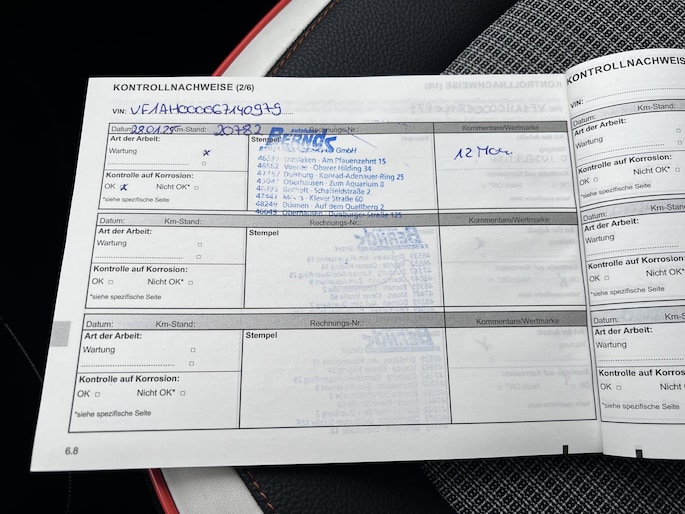 KONTROLLNACHWEISE (2/6)
VIN: VF1AH000067140979
Datum: 280125 Km-Stand: 20782 Rechnungs-Nr.: Kommentare/Wertmarke
Art der Arbeit: Stempel
Wartung x
Kontrolle auf Korrosion:
OK x Nicht OK*
*siehe spezifische Seite
autohaus
BERNDS
GmbH
Dinslaken · Am Pfauenzehnt 15
46562 Voerde · Oberer Hilding 34
Duisburg · Konrad-Adenauer-Ring 25
Oberhausen · Zum Aquarium 8
46395 Bocholt · Schaffeldstraße 2
Moers · Klever Straße 60
48249 Dülmen · Auf dem Quellberg 2
46049 Oberhausen · Duisburger Straße 125
12 Mon.
Datum: Km-Stand: Rechnungs-Nr.: Kommentare/Wertmarke
Art der Arbeit: Stempel
Wartung
Kontrolle auf Korrosion:
OK Nicht OK*
*siehe spezifische Seite
Datum: Km-Stand: Rechnungs-Nr.: Kommentare/Wertmarke
Art der Arbeit: Stempel
Wartung
Kontrolle auf Korrosion:
OK Nicht OK*
*siehe spezifische Seite
6.8
KONTROLLNACHWEISE
VIN:
Datum: Km-Stand:
Art der Arbeit:
Wartung
Kontrolle auf Korrosion:
OK Nicht OK*
*siehe spezifische Seite
Datum: Km-Stand:
Art der Arbeit:
Wartung
Kontrolle auf Korrosion:
OK Nicht OK*
*siehe spezifische Seite
Datum: Km-Stand:
Art der Arbeit:
Wartung
Kontrolle auf Korrosion:
OK Nicht OK*
*siehe spezifische Seite